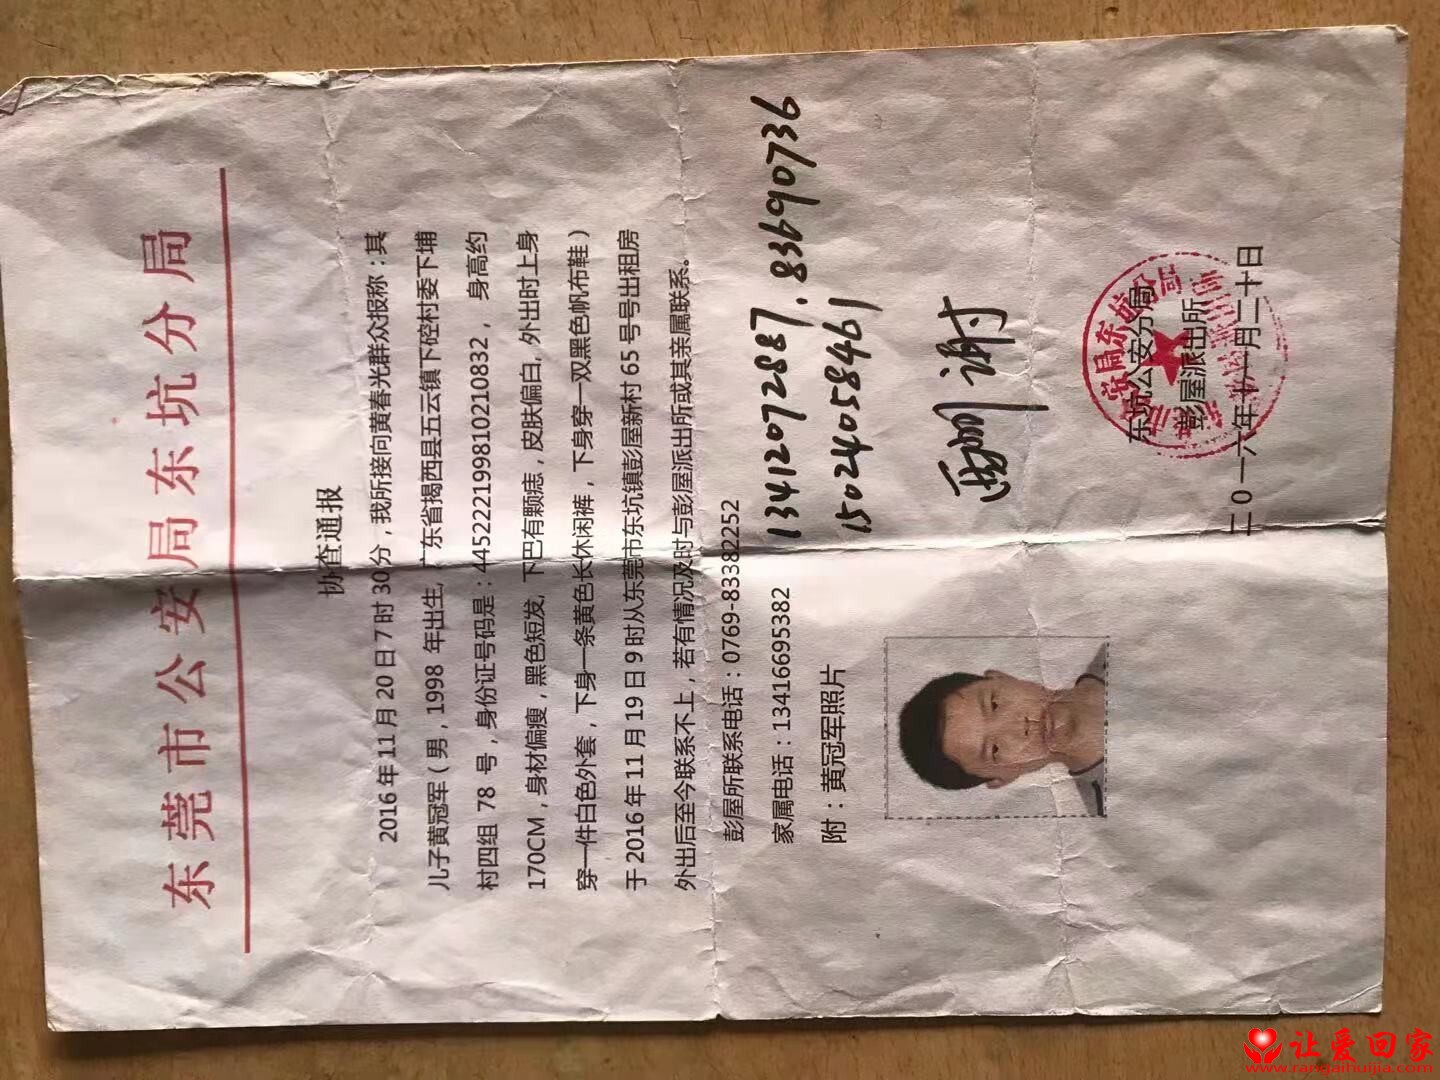 东莞市公安局东坑分局
协查通报
2016年11月20日7时30分，我所接向黄春光群众报称：其
儿子黄冠军（男，1998年出生，广东省揭西县五云镇下硿村委下埔
村四组 78 号，身份证号码是：445222199810210832，身高约
170CM，身材偏瘦，黑色短发，下巴有颗痣，皮肤偏白，外出时上身
穿一件白色外套，下身一条黄色长休闲裤，下身穿一双黑色帆布鞋）
于2016年11月19日9时从东莞市东坑镇彭屋新村65号号出租房
外出后至今联系不上，若有情况及时与彭屋派出所或其亲属联系。
彭屋所联系电话：0769-83382252
家属电话：13416695382
13412072887. 83690736
15024058461
附：黄冠军照片
谢
东坑公安分局
彭屋派出所
二0一六年十一月二十日
让爱回家
www.rangaihuijia.com